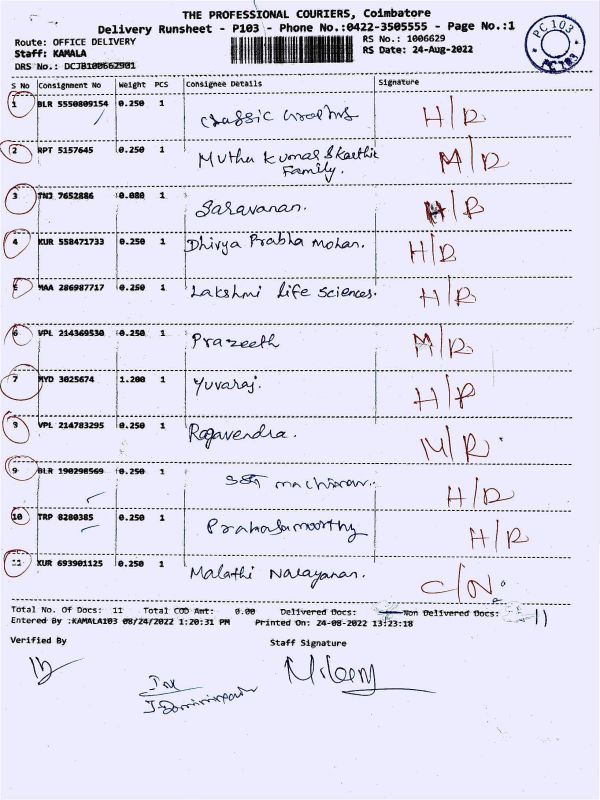 THE PROFESSIONAL COURIERS, Coimbatore
Delivery Runsheet - P103 - Phone No.:0422-3505555 - Page No.:1
Route: OFFICE DELIVERY
RS No.: 1006629
Staff: KAMALA
RS Date: 24-Aug-2022
DRS No.: DCJB100662901
PC 103
PC 103
S No Consignment No Weight PCS Consignee Details Signature
1 BLR 5550809154 0.250 1 Classic H/R
2 RPT 5157645 0.250 1 Muthu Kumar & Karthic M/R
Family.
3 TNJ 7652886 0.080 1 Saravanan. H/R
4 KUR 558471733 0.250 1 Dhivya Prabha Mohan. H/R
5 MAA 286987717 0.250 1 Lakshmi Life Sciences. H/R
6 VPL 214369530 0.250 1 Prazeeth M/R
7 MYD 3025674 1.200 1 Yuvaraj. H/R
VPL 214783295 0.250 1 Ragavendra. M/R
9 BLR 190298569 0.250 1 H/R
10 TRP 8280385 0.250 1 H/R
11 KUR 693901125 0.250 1 Malathi Narayanan. C/N.
Total No. Of Docs: 11 Total COD Amt: 0.00 Delivered Docs: Non Delivered Docs: 11
Entered By :KAMALA103 08/24/2022 1:20:31 PM Printed On: 24-08-2022 13:23:18
Verified By
Staff Signature